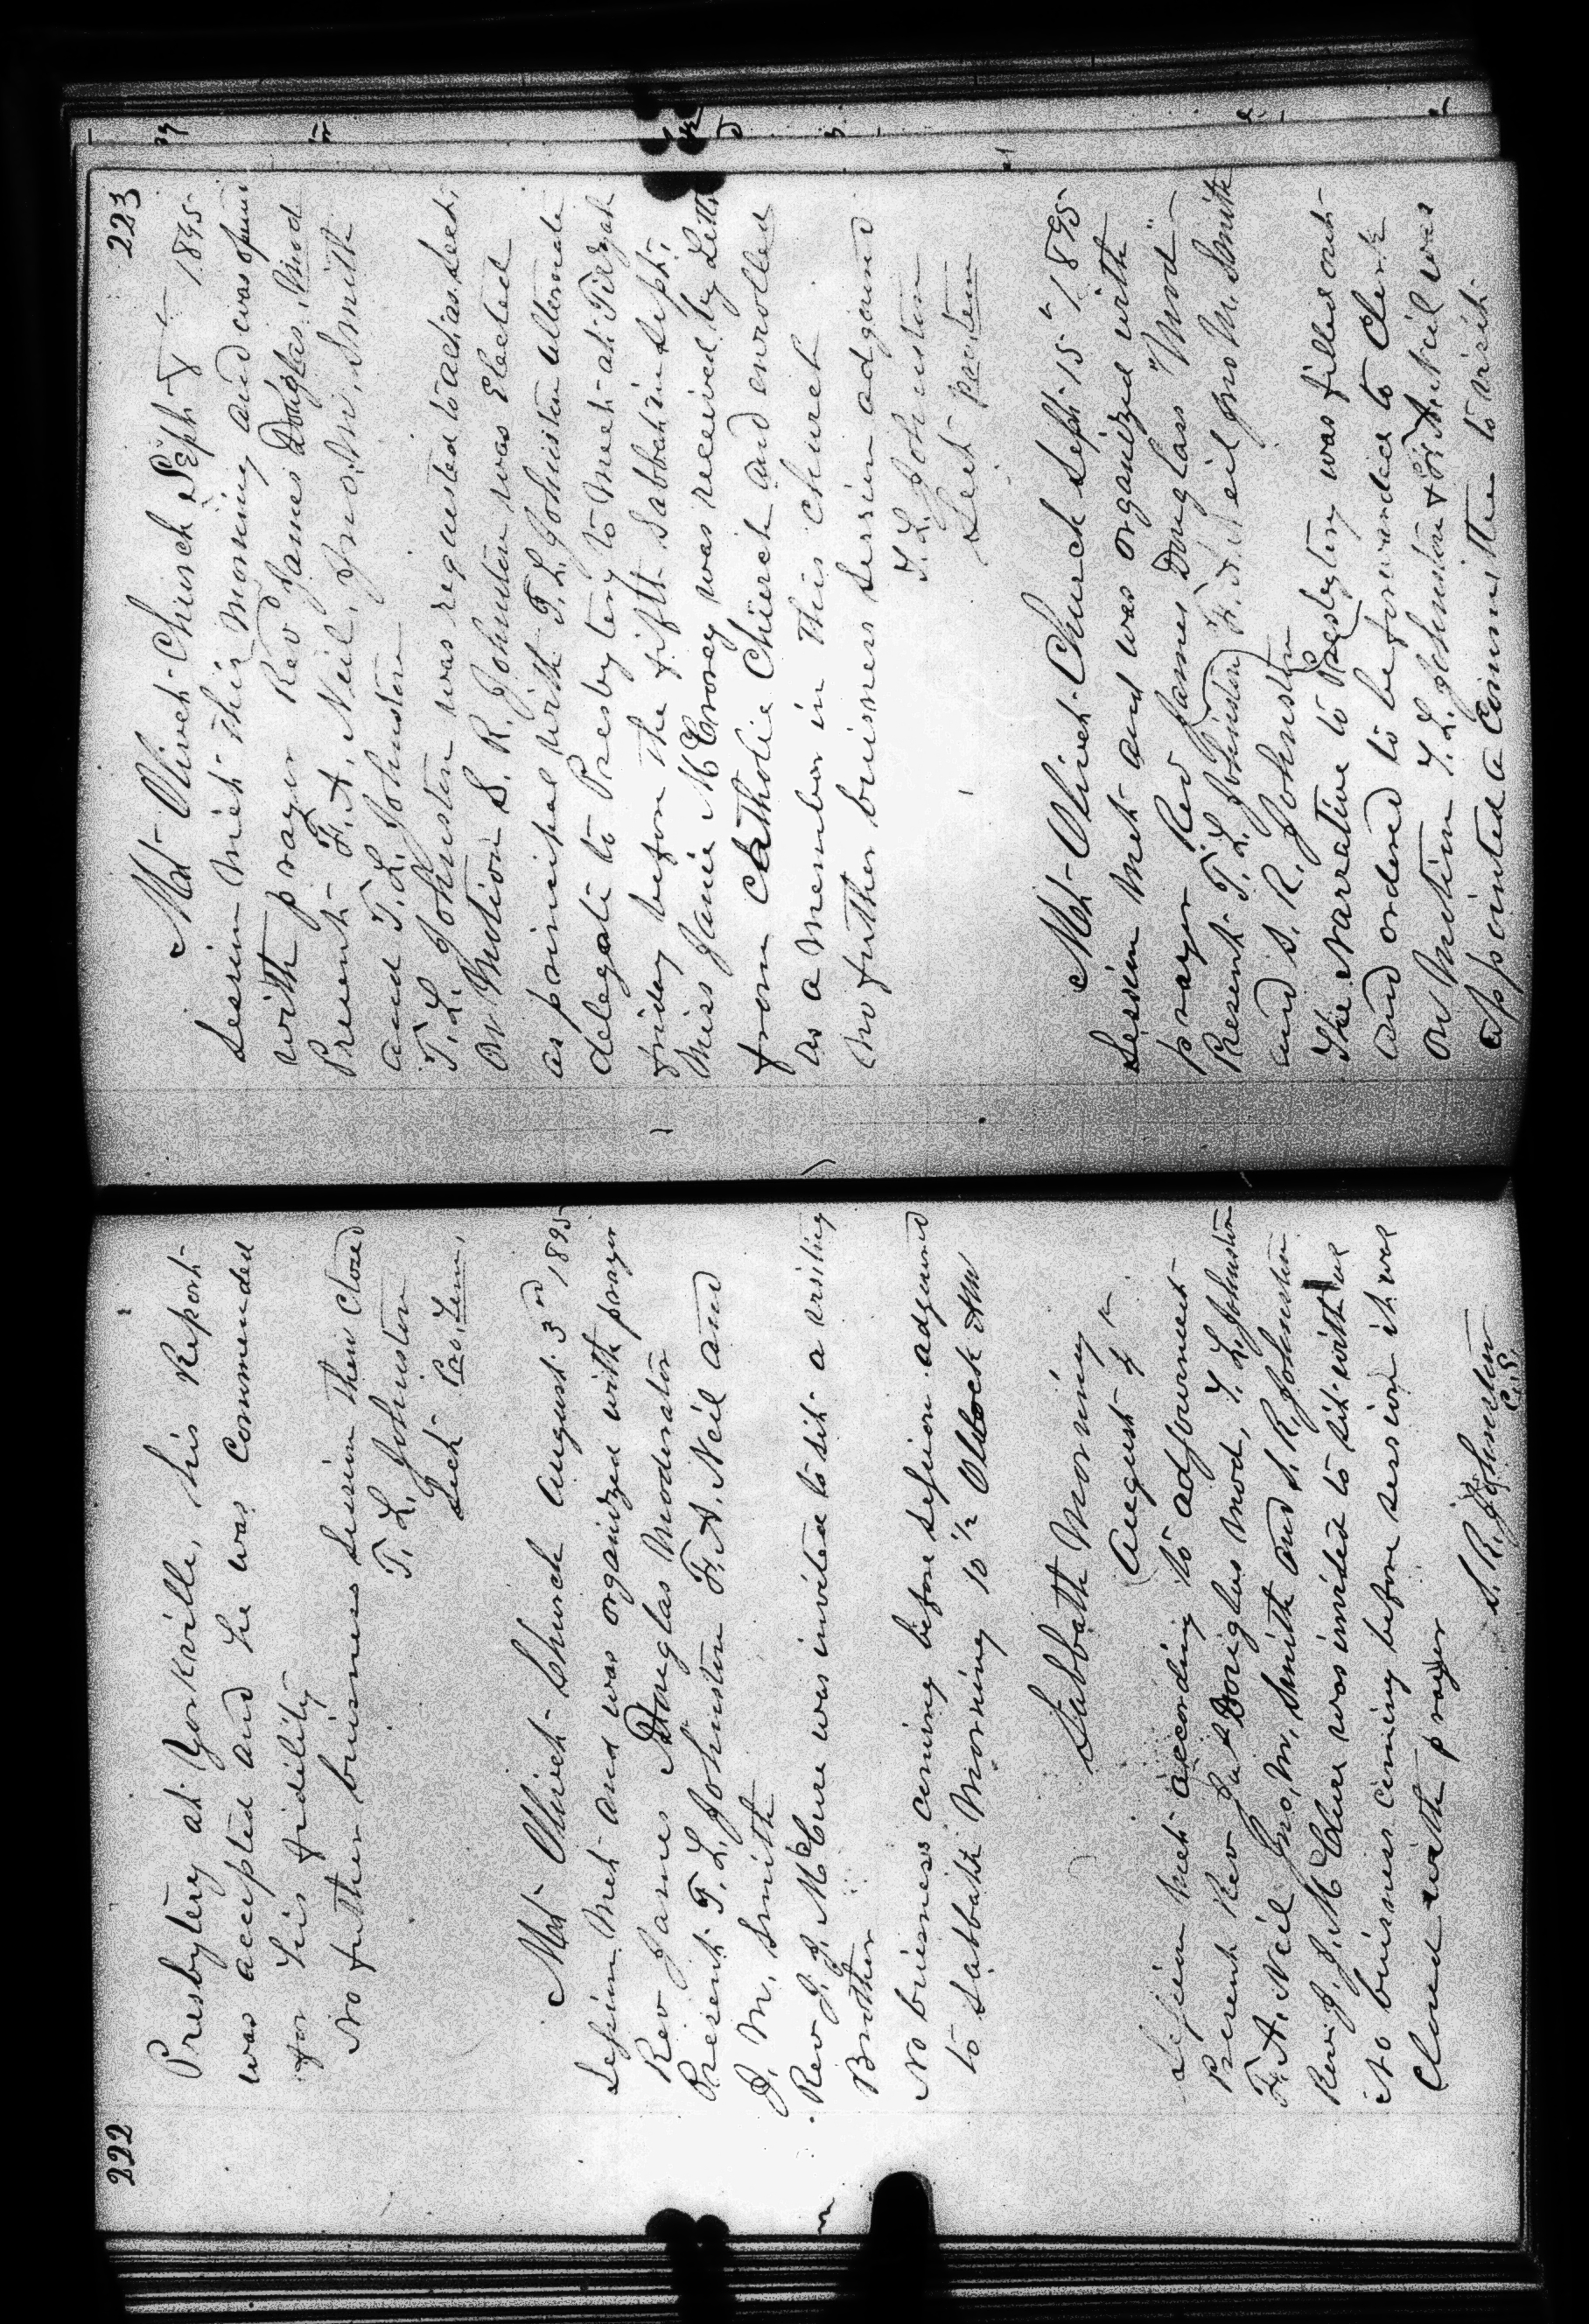 222
Presbytery at Yorkville, his Report
was accepted and he was Commended
for his fidility
No further business Session then Closed
T. L. Johnston
Sect Pro. Tem.
Mt Olivet Church August 3rd 1895
Session Met and was organized with prayer
Rev James Douglas Moderator
Present T. L. Johnston F. A. Neil and
J. M. Smith
Rev J. J. McClure was invited to sit a visiting
Brother
No business coming before Session adjourned
to Sabbath Morning 10 1/2 Oclock AM
Sabbath Morning
August 4th
Session met according to adjournment
Present Rev Jas Douglas Mod, T. L. Johnston
F. A. Neil Jno. M. Smith and S. R. Johnston
Rev. J. J. McClure was invited to sit with us
No business coming before session it was
Closed with prayer
S. R. Johnston
C. S.
223
Mt Olivet Church Sept 1895
Session Met this Morning and was opened
with prayer Rev James Douglas Mod
Present F. A. Neil, Jno. M. Smith
and T. L. Johnston
T. L. Johnston was requested to act as Sect.
On Motion S. R. Johnston was Elected
as principal with T. L. Johnston alternate
delegate to Presbytery to Meet at Tirzah
friday before the fifth Sabbath in Sept.
Miss Janie McCrorey was received by Letter
from Catholic Church and enrolled
as a Member in This Church
No further business Session adjourned
T. L. Johnston
Sect pro. tem
Mt Olivet Church Sept 15th 1895
Session Met and was organized with
prayer Rev James Douglass "Mod"
Present T. L. Johnston F. A. Neil Jno M. Smith
and S. R. Johnston
The Narrative to Presbytery was filled out
and ordered to be forwarded to Clerk
On Motion T. L. Johnston & F. A. Neil was
appointed a Committee to visit